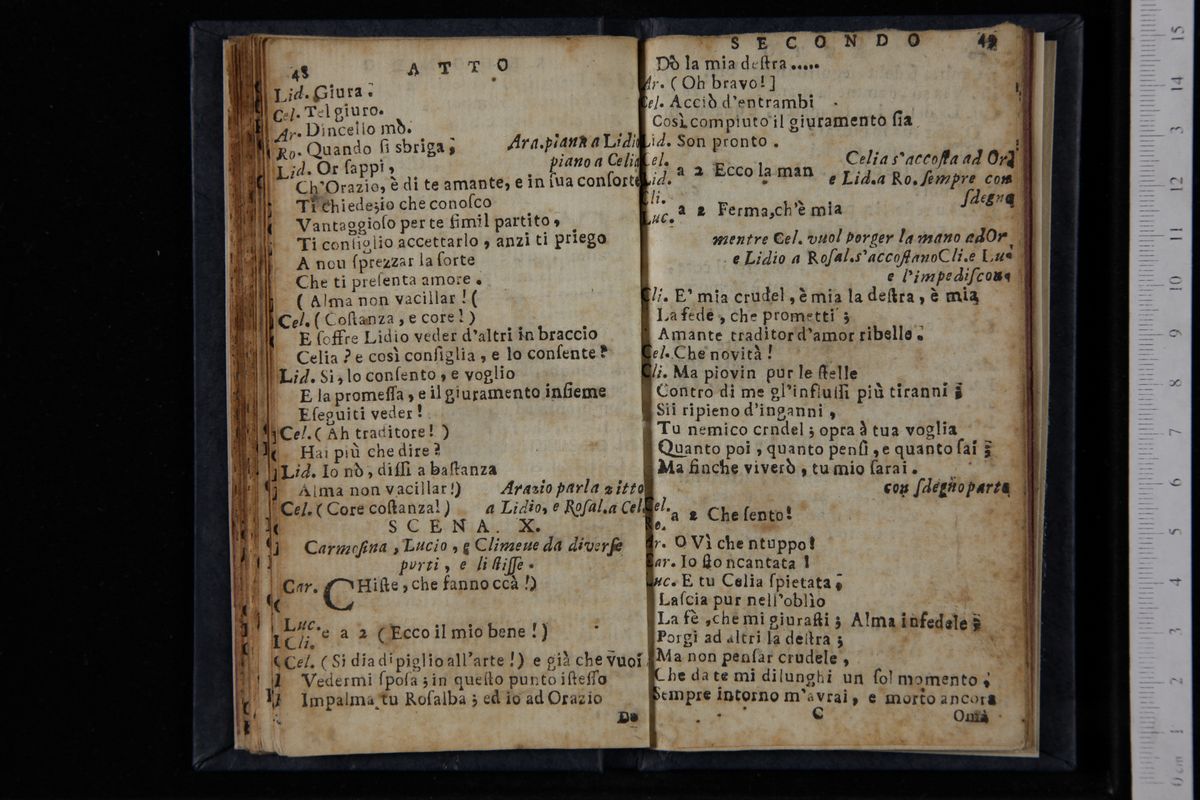 48 ATTO
Lid. Giura.
Cel. Tel giuro.
Ar. Dincello mò.
Ro. Quando ſi sbriga; Ara.piann a Lidio
Lid. Or ſappi, piano a Celia
Ch'Orazio, è di te amante, e in ſua conſorte
Ti chiede; io che conoſco
Vantaggioſo per te ſimil partito,
Ti conſiglio accettarlo, anzi ti priego
A nou ſprezzar la ſorte
Che ti preſenta amore.
( Alma non vacillar! (
Cel. ( Coſtanza, e core! )
E ſoffre Lidio veder d'altri in braccio
Celia? e così conſiglia, e lo conſente?
Lid. Si, lo conſento, e voglio
E la promeſſa, e il giuramento inſieme
Eſeguiti veder!
Cel. ( Ah traditore! )
Hai più che dire?
Lid. Io nò, diſſi a baſtanza
Alma non vacillar!) Arazio parla zitto
Cel. ( Core coſtanza!) a Lidio, e Roſal.a Cel.
SCENA. X.
Carmoſina, Lucio, e Climeue da diverſe
parti, e li ſtiſſe.
Car. CHiſte, che fanno ccà!)
Luc.
Cli. e a 2 ( Ecco il mio bene! )
Cel. ( Si dia di piglio all'arte!) e già che vuoi
Vedermi ſpoſa; in queſto punto iſteſſo
Impalma tu Roſalba; ed io ad Orazio
Do
SECONDO 49
Dò la mia deſtra.....
Ar. ( Oh bravo!]
Cel. Acciò d'entrambi
Così compiuto il giuramento ſia
Lid. Son pronto.
Cel.
Lid. a 2 Ecco la man Celia s'accoſta ad Or.
e Lid.a Ro. ſempre con
ſdegno
Cli.
Luc. a 2 Ferma, ch'è mia
mentre Cel. vuol porger la mano ad Or,
e Lidio a Roſal.s'accoſtano Cli.e Lu.
e l'impediſcono
Cli. E' mia crudel, è mia la deſtra, è mia
La fede, che prometti;
Amante traditor d'amor ribelle.
Cel. Che novità!
Cli. Ma piovin pur le ſtelle
Contro di me gl'influſſi più tiranni;
Sii ripieno d'inganni,
Tu nemico crndel; opra à tua voglia
Quanto poi, quanto penſi, e quanto ſai;
Ma finche viverò, tu mio ſarai.
con ſdegno parte
Cel.
Ro. a 2 Che ſento!
Ar. O Vì che ntuppo!
Car. Io ſto ncantata!
Luc. E tu Celia ſpietata;
Laſcia pur nell'oblìo
La fè, che mi giuraſti; Alma infedele;
Porgi ad altri la deſtra;
Ma non penſar crudele,
Che da te mi dilunghi un ſol momento,
Sempre intorno m'avrai, e morto ancora
C Omà